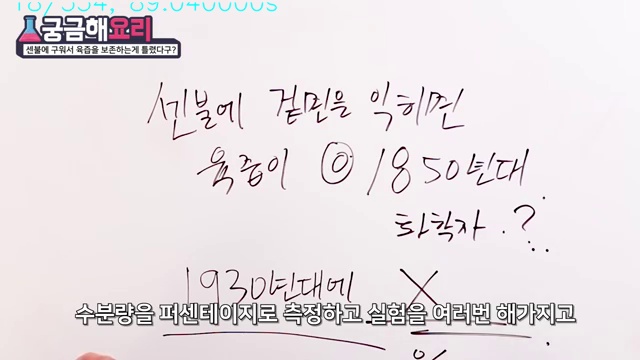 18/554, 89.040000s
궁금해요리
센불에 구워서 육즙을 보존하는게 틀렸다구?
센불에 겉면을 익히면
육즙이 ◎ 1850년대
화학자.?
1930년대에 X
수분량을 퍼센테이지로 측정하고 실험을 여러번 해가지고
%